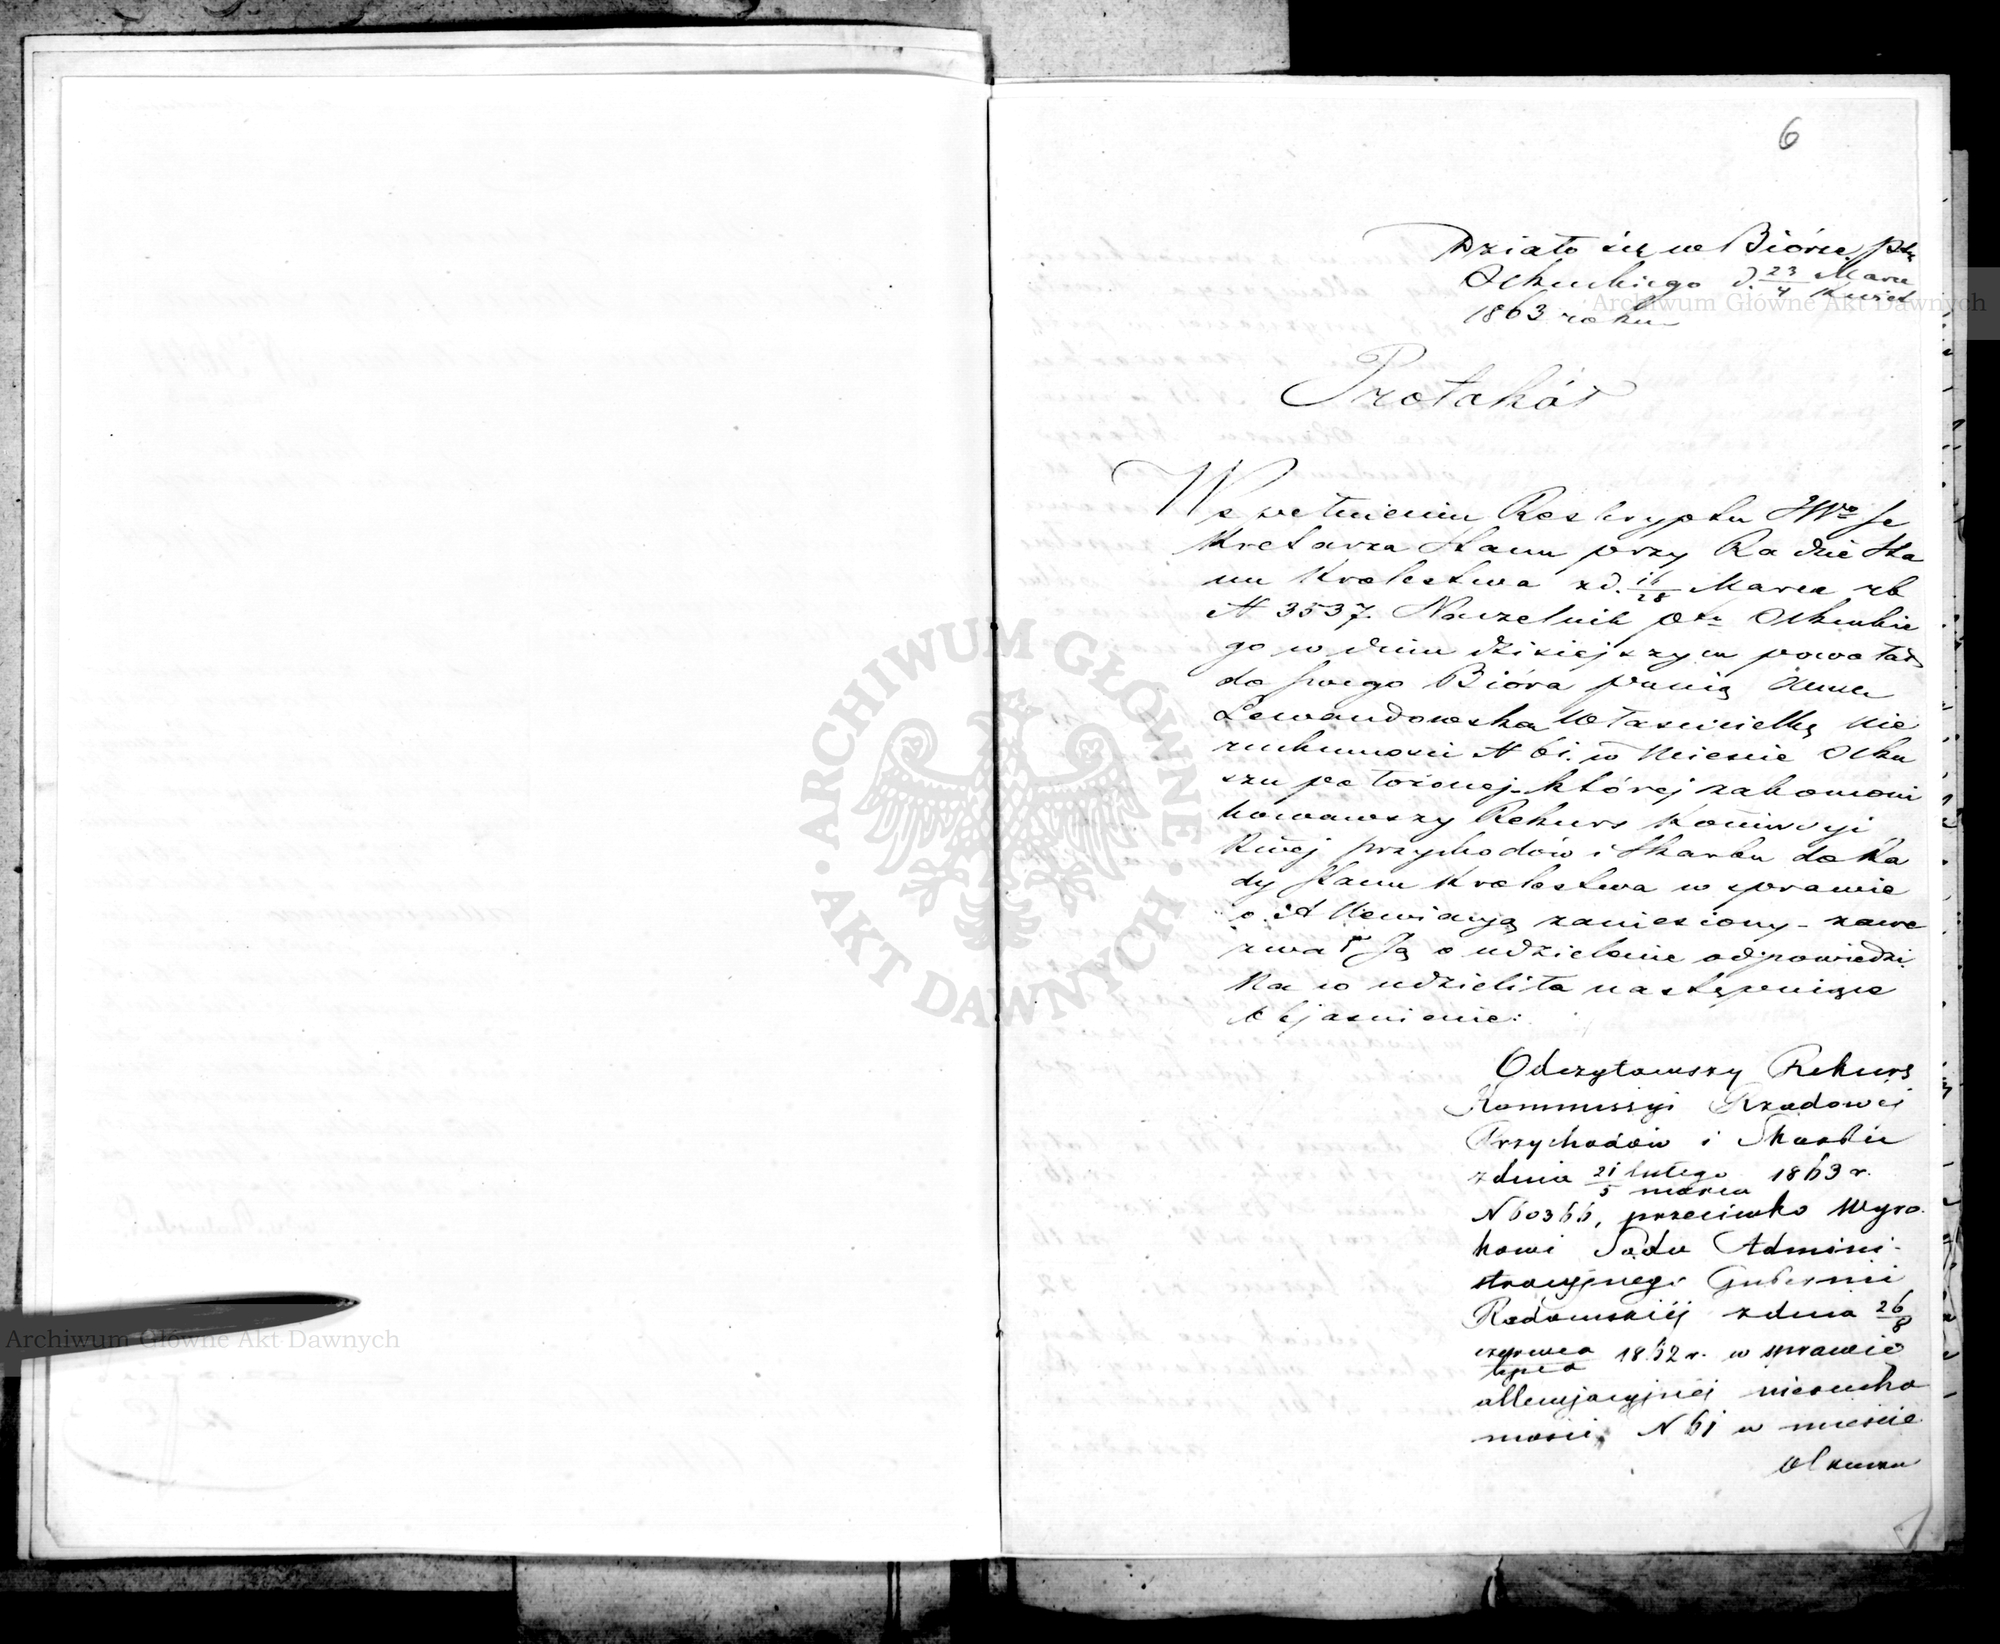 6
Działo się w Biórze Ptu
Olkuskiego d. 23/4 Marca/Kwiet
1863 roku
Protokół
W spełnieniu Reskryptu JWo Se
kretarza Stanu przy Radzie Sta
nu Królestwa z d. 16/28 Marca rb
N 3537. Naczelnik Ptu Olkuskie
go w dniu dzisiejszym powołał
do swego Bióra panią Annę
Lewandowska Właścicielkę nie
ruchomości N 61. w Mieście Olku
szu położonej, której zakomuni
kowawszy Rekurs Kommissyi
Rządj przychodów i Skarbu do Ra
dy Stanu Królestwa w sprawie
o Allewiacyą zaniesiony – zawe
zwał Ją o udzielenie odpowiedzi.
Na co udzieliła następujące
objasnienie:
Odczytawszy Rekurs
Kommissyi Rządowej
Przychodów i Skarbu
z dnia 21 lutego/5 marca 1863 r.
N 60366, przeciwko Wyro-
kowi Sądu Admini-
stracyjnego Gubernii
Radomskiej z dnia 26/8
czerwca/lipca 1862 r. w sprawie
allewjacyjnej nierucho
mości N 61 w mieście
Olkuszu
Archiwum Główne Akt Dawnych
ARCHIWUM GŁÓWNE · AKT DAWNYCH ·
Archiwum Główne Akt Dawnych